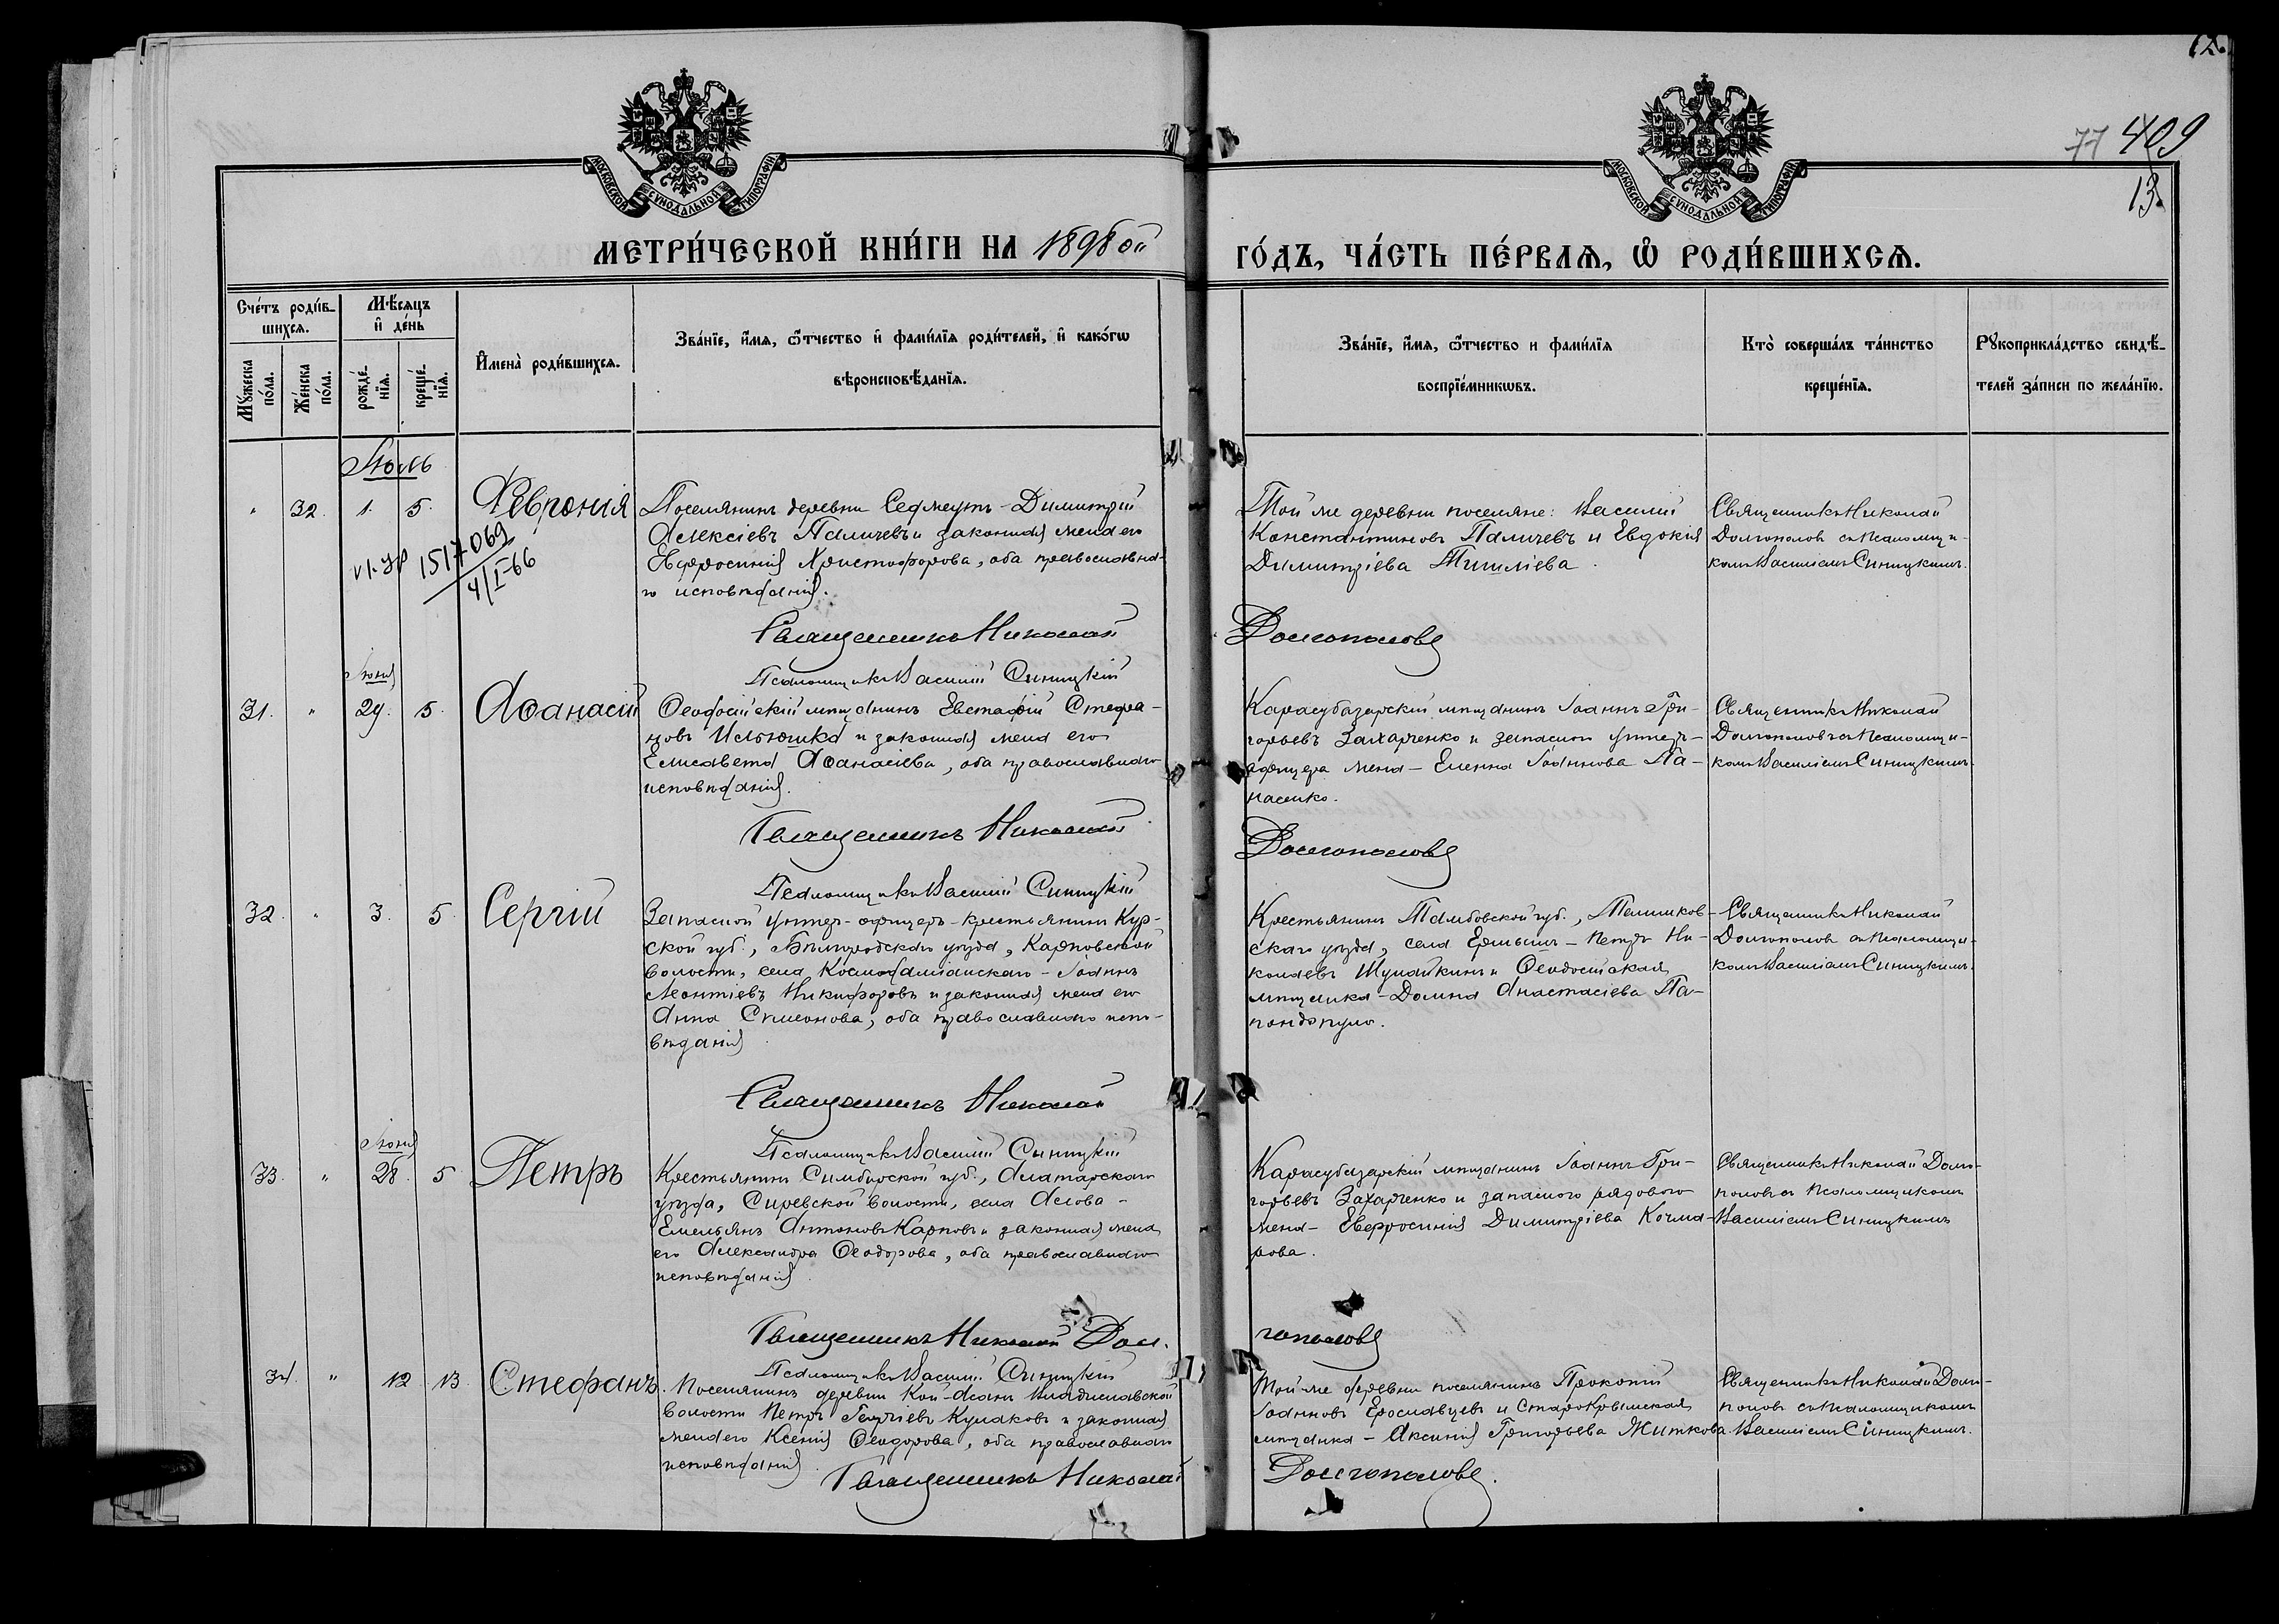 12.
77 409
13.
МОСКОВСКОЙ СѴНОДАЛЬНОЙ ТИПОГРАФІИ
МОСКОВСКОЙ СѴНОДАЛЬНОЙ ТИПОГРАФІИ
МЕТРИ́ЧЕСКОЙ КНИ́ГИ НА 1898ой
ГО́ДЪ, ЧА́СТЬ ПЕ́РВАѦ, Ѡ҆ РОДИ́ВШИХСѦ.
Сче́тъ роди́в-
шихсѧ.
Мꙋ́жеска
по́ла.
Же́нска
по́ла.
Мѣ́сѧцъ
и҆ де́нь
рожде́-
нїѧ.
креще́-
нїѧ.
И҆мена̀ роди́вшихсѧ.
Зва́нїе, и҆́мѧ, ѻ҆́тчество и҆ фами́лїѧ роди́телей, и҆ како́гѡ
вѣроисповѣ́данїѧ.
Зва́нїе, и҆́мѧ, ѻ҆́тчество и фами́лїѧ
воспрїе́мникѡвъ.
Кто̀ соверша́лъ та́инство
креще́нїѧ.
Рꙋкоприкла́дство свидѣ́-
телей за́писи по жела́нїю.
Іюль
" 32. 1. 5. Февронія
1517069
4/I-66
Поселянинъ деревни Сеймеутъ - Димитрій
Алексіевъ Паличевъ и законная жена его
Евфросинія Христофорова, оба православна-
го исповѣданія.
Той же деревни поселяне: Василій
Константиновъ Паличевъ и Евдокія
Димитріева Тишліева.
Священникъ Николай
Долгополовъ съ псаломщи-
комъ Василіемъ Синицкимъ.
Священникъ Николай Долгополовъ
Псаломщикъ Василій Синицкій
Іюня
31. " 29. 5. Аѳанасій
Ѳеодосійскій мѣщанинъ Евстафій Стефа-
новъ Ильюшка и законная жена его
Елисавета Аѳанасіева, оба православнаго
исповѣданія.
Карасубазарскій мѣщанинъ Іоаннъ Гри-
горьевъ Захарченко и запаснаго унтеръ-
офицера жена - Еленна Іоаннова Па-
насенко.
Священникъ Николай
Долгополовъ съ псаломщи-
комъ Василіемъ Синицкимъ.
Священникъ Николай Долгополовъ
Псаломщикъ Василій Синицкій
32. " 3. 5. Сергій
Запасной унтеръ-офицеръ - крестьянинъ Кур-
ской губ., Бѣлгородскаго уѣзда, Карповской
волости, села Космодаміанскаго - Іоаннъ
Леонтіевъ Никифоровъ и законная жена его
Анна Симеонова, оба православнаго испо-
вѣданія
Крестьянинъ Тамбовской губ., Темников-
скаго уѣзда, села Ермышъ - Петръ Ни-
колаевъ Шумайкинъ и Ѳеодосійская
мѣщанка - Домна Анастасіева Па-
пандопуло.
Священникъ Николай
Долгополовъ съ псаломщи-
комъ Василіемъ Синицкимъ.
Священникъ Николай
Псаломщикъ Василій Синицкій
Іюня
33. " 28. 5. Петръ
Крестьянинъ Симбирской губ., Алатырскаго
уѣзда, Сиревской волости, села Аслова -
Емельянъ Антоновъ Карповъ и законная жена
его Александра Ѳеодорова, оба православнаго
исповѣданія
Карасубазарскій мѣщанинъ Іоаннъ Гри-
горьевъ Захарченко и запаснаго рядового
жена - Евфросинія Димитріева Кочма-
рова.
Священникъ Николай Долго-
половъ съ псаломщикомъ
Василіемъ Синицкимъ
Священникъ Николай Долгополовъ
Псаломщикъ Василій Синицкій
34. " 12 13. Стефанъ.
Поселянинъ деревни Кой-Асанъ Владиславской
волости Петръ Георгіевъ Кулаковъ и законная
жена его Ксенія Ѳеодорова, оба православнаго
исповѣданія
Той же деревни поселянинъ Прокопій
Іоанновъ Ерославцевъ и Старокрымская
мѣщанка - Аксинія Григорьева Житкова.
Священникъ Николай Долго-
половъ съ псаломщикомъ
Василіемъ Синицкимъ.
Священникъ Николай Долгополовъ.